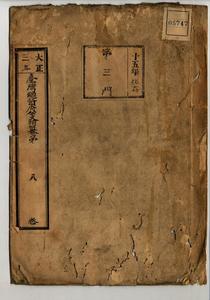 05747
十五年
第三門
大正
二年
臺灣總督府公文類纂
八
卷